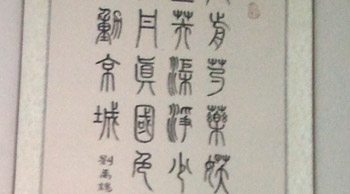 前芍藥妖
上芙蕖淨少
丹眞國色
動京城
劉禹錫